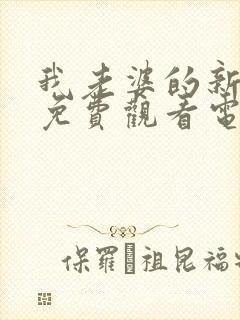 我老婆的新
免費觀看電
保羅·祖昆福